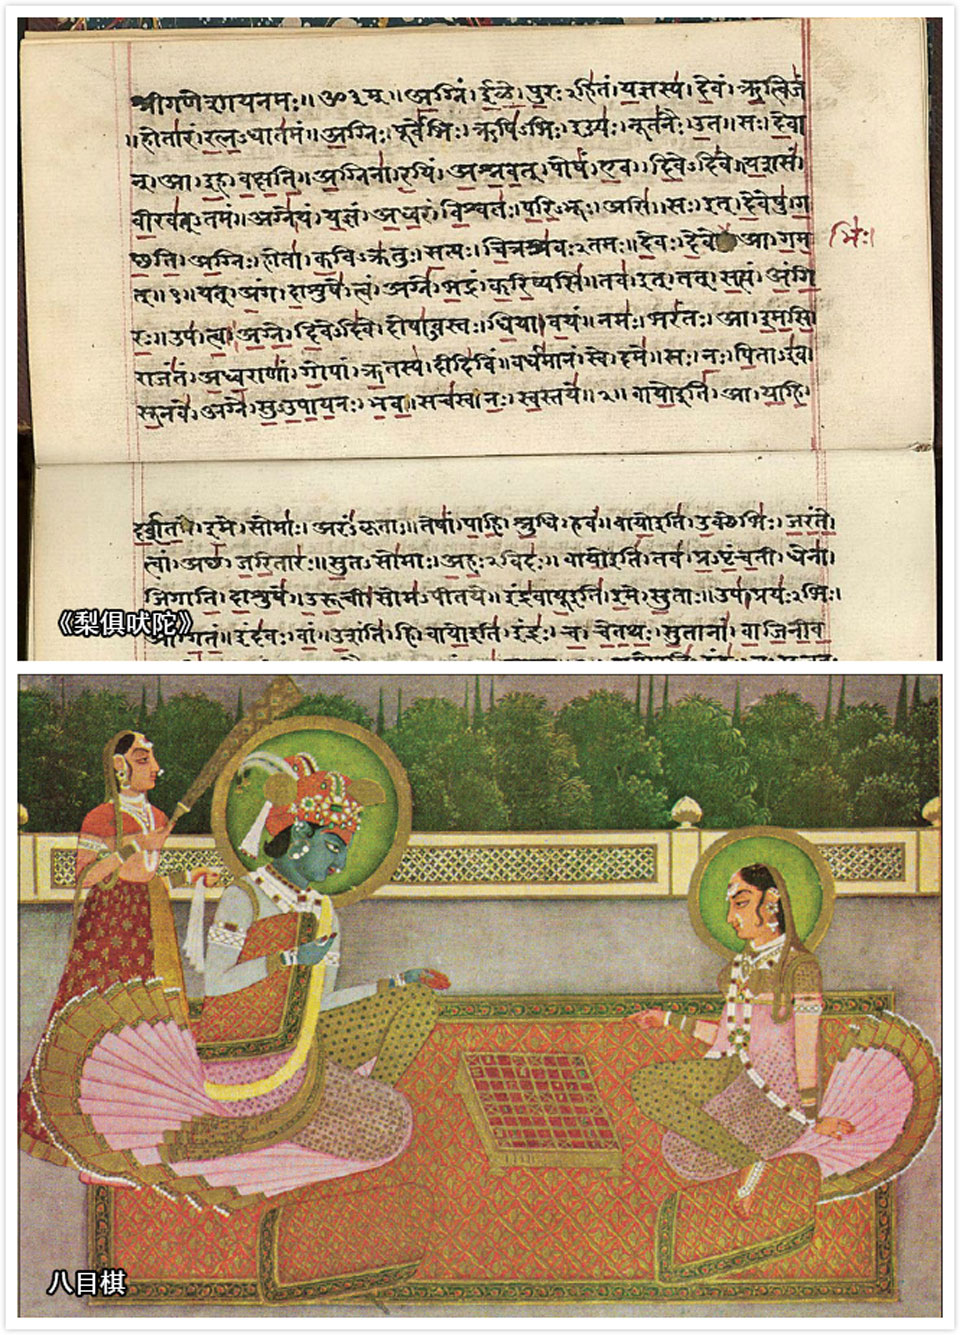 श्रीगणेशायनमः॥ॐ३म्॥अग्निं।ईळे।पुरःऽहितं।यज्ञस्य।देवं।ऋत्विजं
॥होतारं।रत्नऽधातमं॥अग्निः।पूर्वेभिः।ऋषिऽभिः।ईड्यः।नूतनैः।उत॥सः।देवा
न्।आ।इह।वक्षति॥अग्निना।रयिं।अश्नवत्।पोषं।एव।दिवेऽदिवे॥यशसं
वीरवत्ऽतमं॥अग्ने।यं।यज्ञं।अध्वरं।विश्वतः।परिऽभूः।असि॥सः।इत्।देवेषु।ग
च्छति॥अग्निः।होता।कविऽक्रतुः।सत्यः।चित्रश्रवःऽतमः॥देवः।देवे।आ।गम
त्॥१॥यत्।अंग।दाशुषे।त्वं।अग्ने।भद्रं।करिष्यसि॥तव।इत्।तत्।सत्यं।अंगि
रः॥उप।त्वा।अग्ने।दिवेऽदिवे।दोषाऽवस्तः।धिया।वयं॥नमः।भरंतः।आ।इमसि
राजंतं।अध्वराणां।गोपां।ऋतस्य।दीदिविं॥वर्धमानं।स्वे।दमे॥सः।नः।पिताऽइव
सूनवे।अग्ने।सुऽउपायनः।भव॥सचस्व।नः।स्वस्तये॥२॥वायोइति।आ।याहि।
भिः।
दर्शत।इमे।सोमाः।अरंऽकृताः॥तेषां।पाहि।श्रुधि।हवं॥वायोइति।उक्थेभिः।जरंते।
त्वां।अच्छ।जरितारः॥सुतऽसोमाः।अहःऽविदः॥वायोइति।तव।प्रऽपृंचती।धेना।
जिगाति।दाशुषे।उरूची।सोमऽपीतये॥इंद्रवायूइति।इमे।सुताः॥उप।प्रयःऽभिः।
आ।गतं॥इंदवः।वां।उशंति।हि॥वायोइति।इंद्रः।च।चेतथः।सुतानां।वाजिनीव
《梨俱吠陀》
八目棋